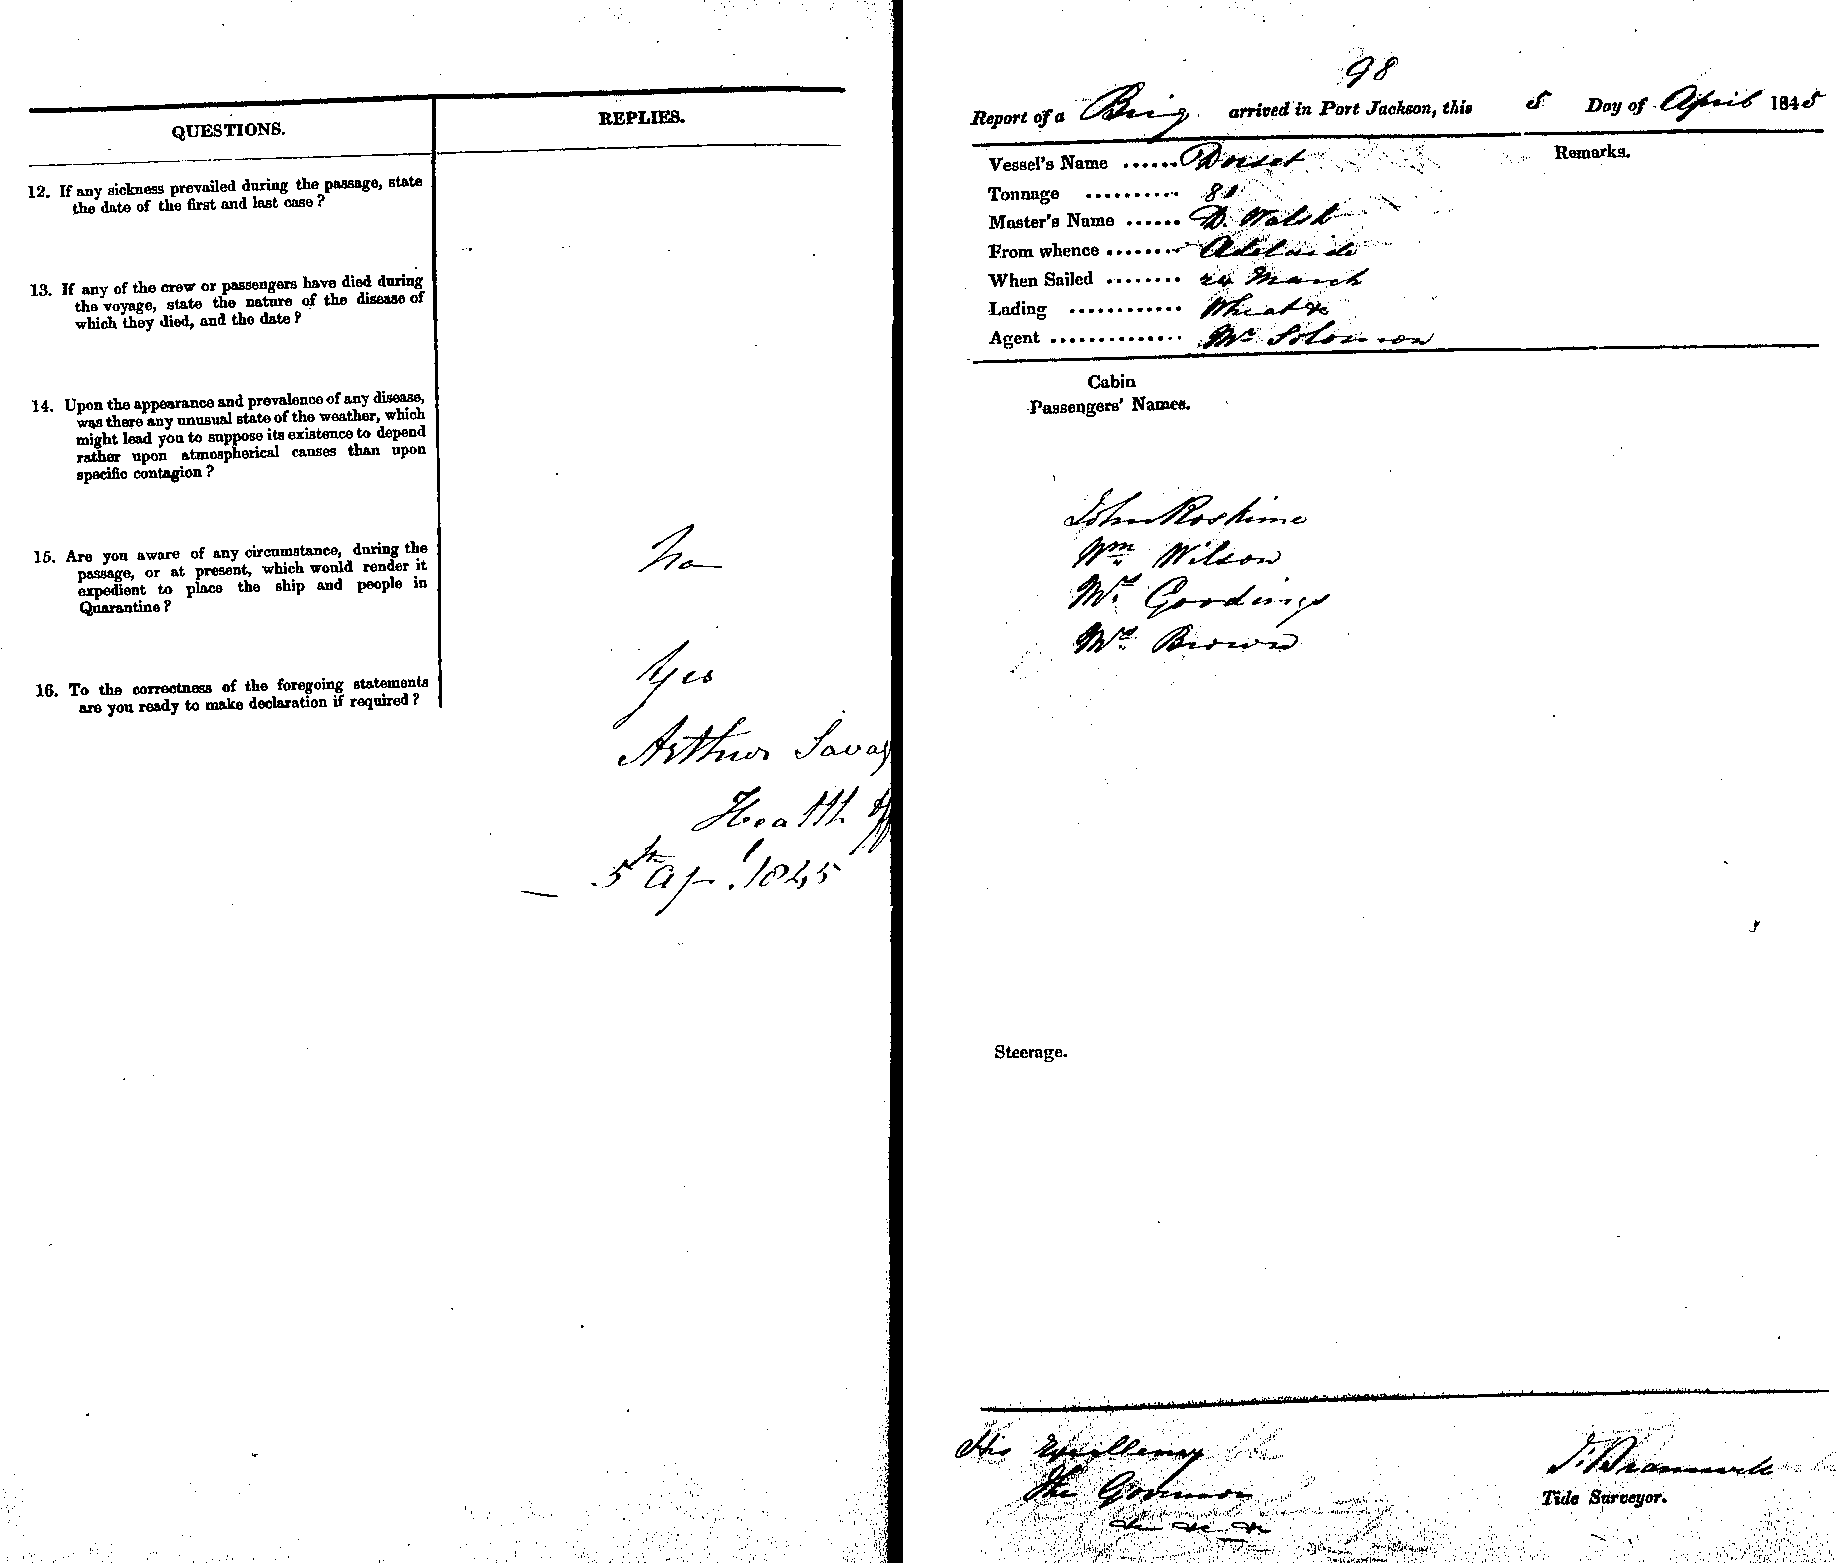 QUESTIONS.
REPLIES.
12. If any sickness prevailed during the passage, state
the date of the first and last case ?
13. If any of the crew or passengers have died during
the voyage, state the nature of the disease of
which they died, and the date ?
14. Upon the appearance and prevalence of any disease,
was there any unusual state of the weather, which
might lead you to suppose its existence to depend
rather upon atmospherical causes than upon
specific contagion ?
15. Are you aware of any circumstance, during the
passage, or at present, which would render it
expedient to place the ship and people in
Quarantine ?
No
16. To the correctness of the foregoing statements
are you ready to make declaration if required ?
Yes
Arthur Savag
Health Off
— 5th Apl. 1845
98
Report of a Brig arrived in Port Jackson, this 5 Day of April 1845
Vessel's Name ...... Dorset
Remarks.
Tonnage .......... 81
Master's Name ...... D. Walsh
From whence ........ Adelaide
When Sailed ........ March
Lading ............ Wheat &c
Agent .............. Mr Solomon
Cabin
Passengers' Names.
John
Wm Wilson
Mr. Goodings
Mr. Brown
Steerage.
His Excellency
The Governor
&c &c &c
Tide Surveyor.